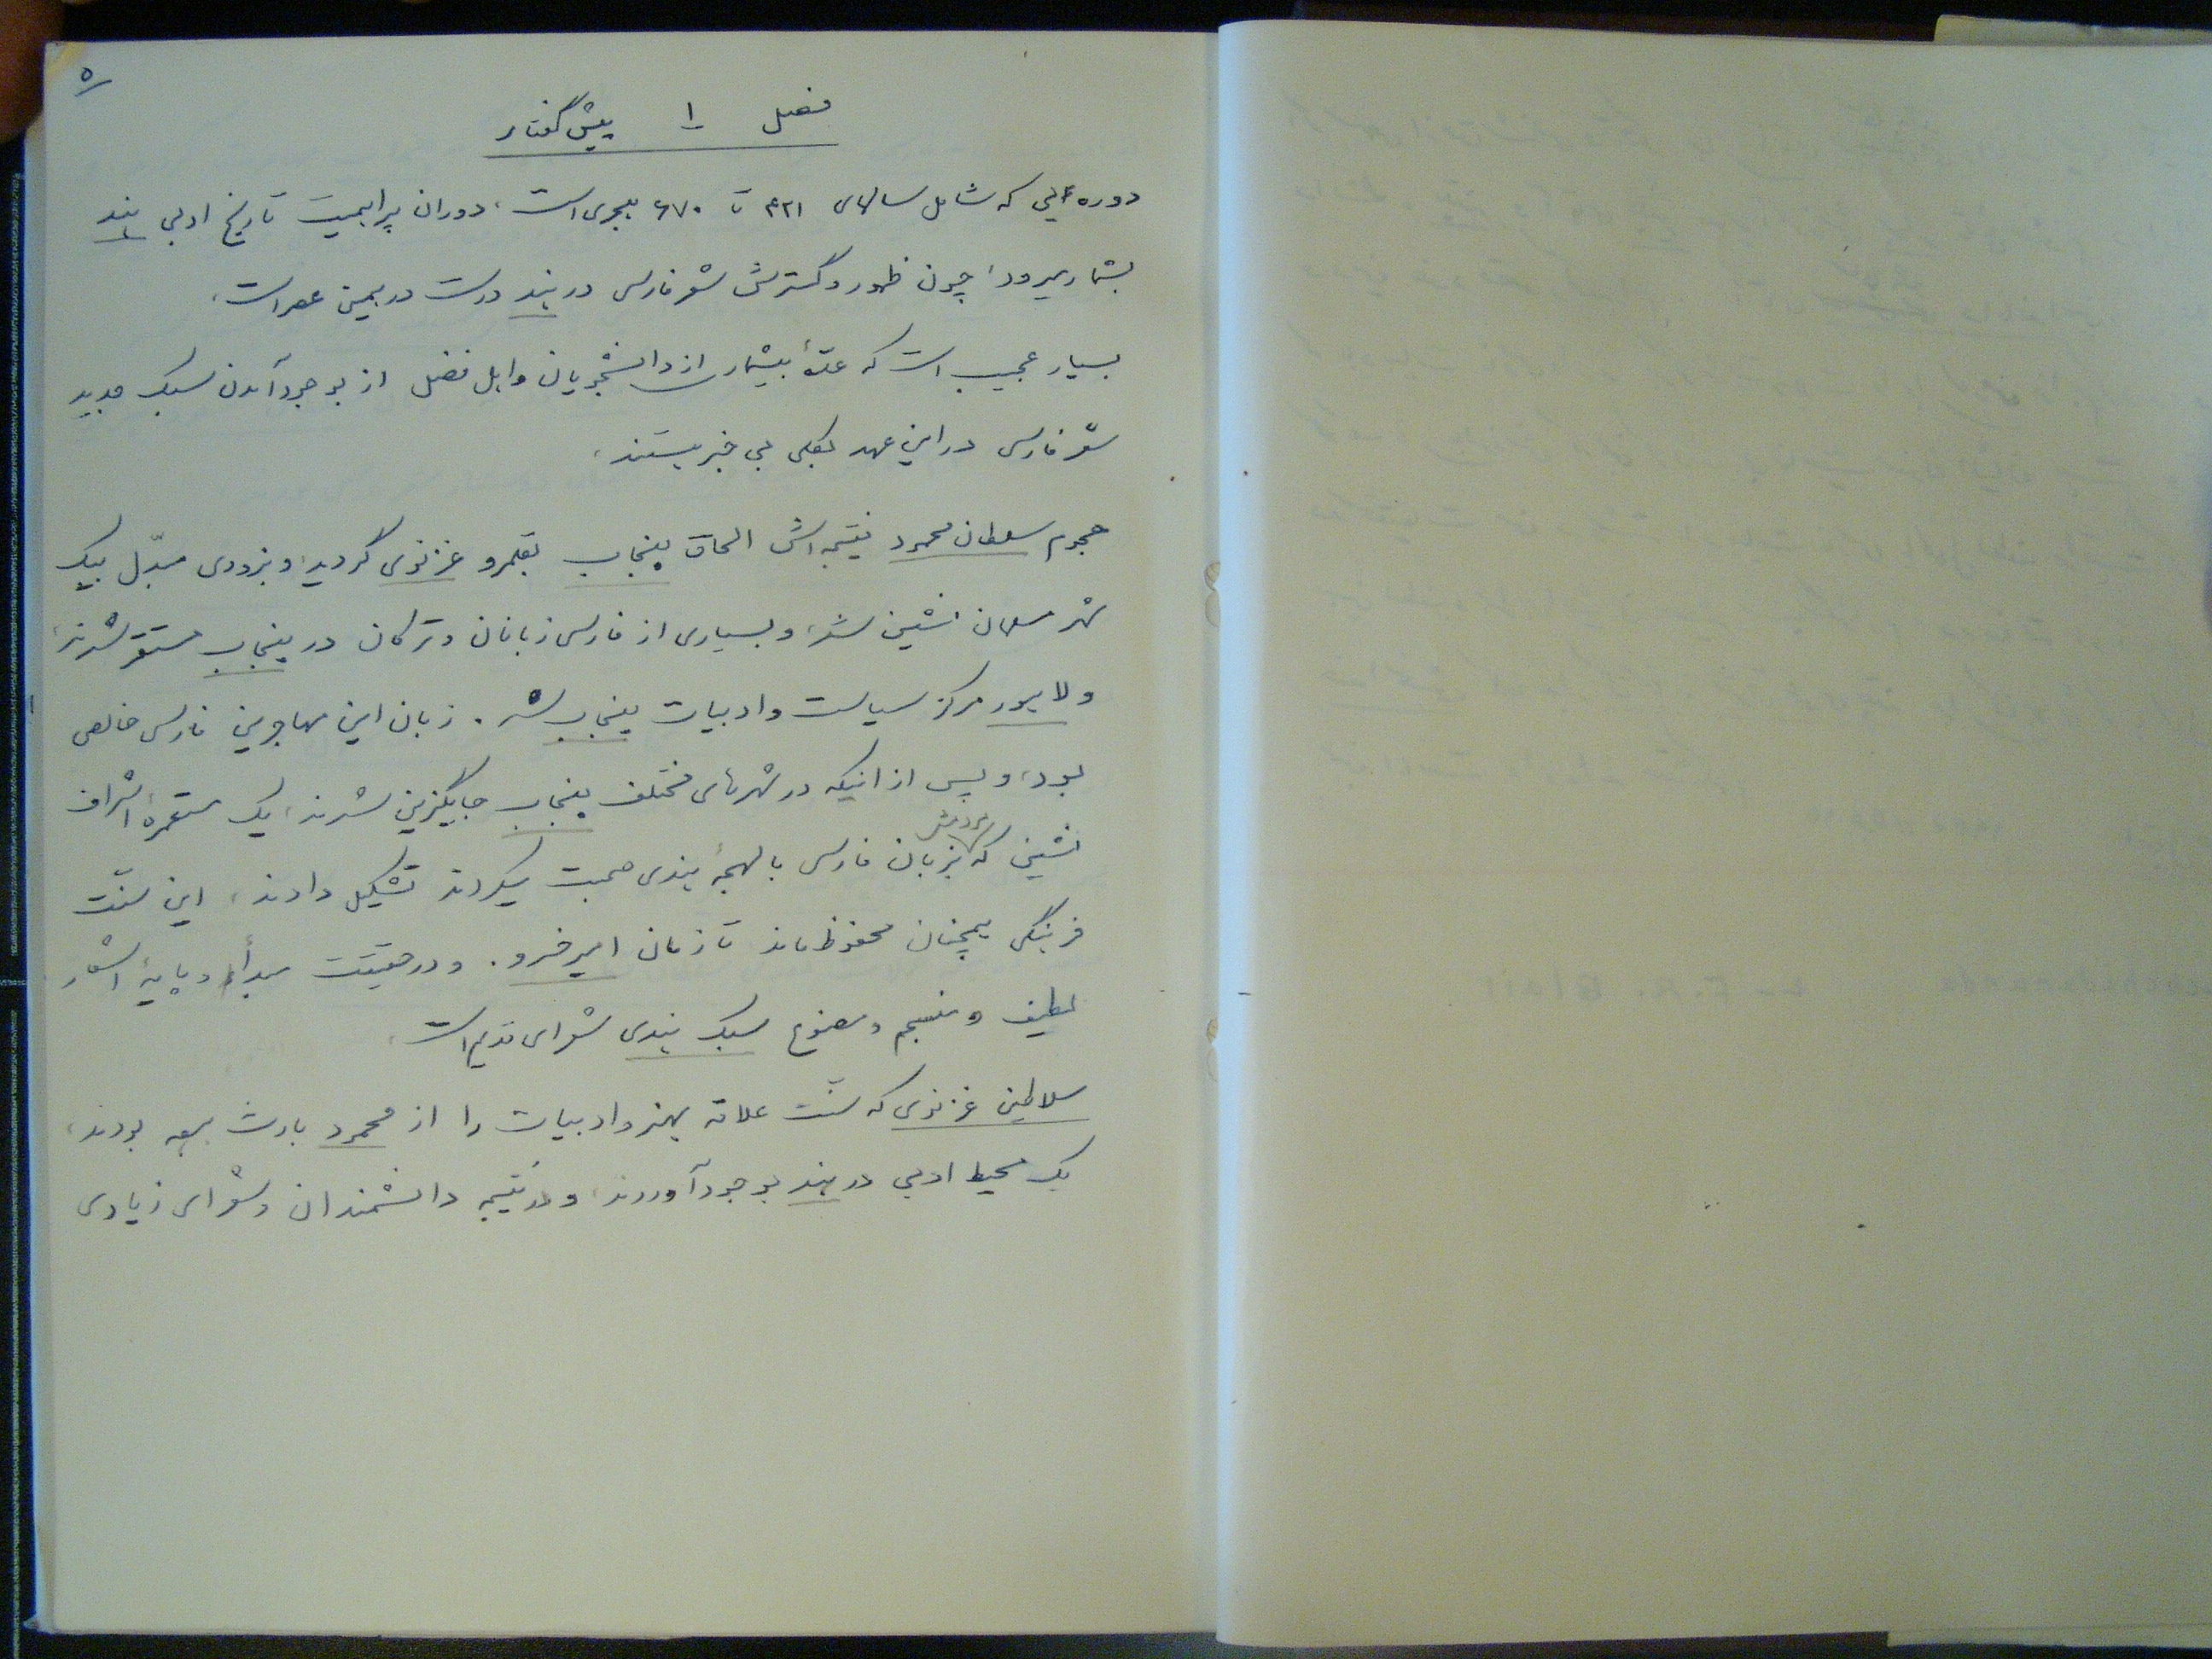 ۵
فصل ۱ پیش گفتار
دوره ئی که شامل سالهای ۴۲۱ تا ۶۷۰ هجری است، دوران پر اهمیت تاریخ ادبی هند
بشمار میرود، چون ظهور و گسترش شعر فارسی در هند درست در همین عصر است.
بسیار عجیب است که عدّۀ بیشماری از دانشجویان و اهل فضل از بوجود آمدن سبک جدید
شعر فارسی در این عهد بکلی بی خبر هستند.
هجوم سلطان محمود نتیجه اش الحاق پنجاب بقلمرو غزنوی گردید، و بزودی مبدّل بیک
شهر مسلمان نشین شد، و بسیاری از فارسی زبانان و ترکان در پنجاب مستقر شدند،
و لاهور مرکز سیاست و ادبیات پنجاب شد. زبان این مهاجرین فارسی خالص
بود، و پس از اینکه در شهرهای مختلف پنجاب جایگزین شدند، یک مستعمرۀ اشراف
نشین که مردمش بزبان فارسی با لهجۀ هندی صحبت میکردند تشکیل دادند، این سنّت
فرهنگی همچنان محفوظ ماند تا زمان امیر خسرو. و در حقیقت مبدأ و پایۀ اشعار
لطیف و منسجم و مصنوع سبک هندی شعرای قدیم است.
سلاطین غزنوی که سنّت علاقه بهنر و ادبیات را از محمود بارث برده بودند،
یک محیط ادبی در هند بوجود آوردند، و در نتیجه دانشمندان و شعرای زیادی